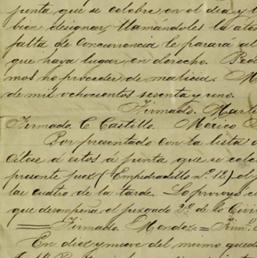 junta que se celebre en el dia y
bien designar, llamándoles la aten
falta de concurrencia le parará al
que haya lugar en derecho.
mos no proceder de malicia. M
de mil ochocientos sesenta y uno.
Firmado. Mart
Firmado C. Castillo. Marcos
Por presentado con la lista
cítese á estos á junta que se cele
presente Juez (Empedradillo nº 12) el
las cuatro de la tarde. Lo proveyó
que desempeña el juzgado 2º de lo Civi
Firmado Mendez
En diez y nueve del mismo qued